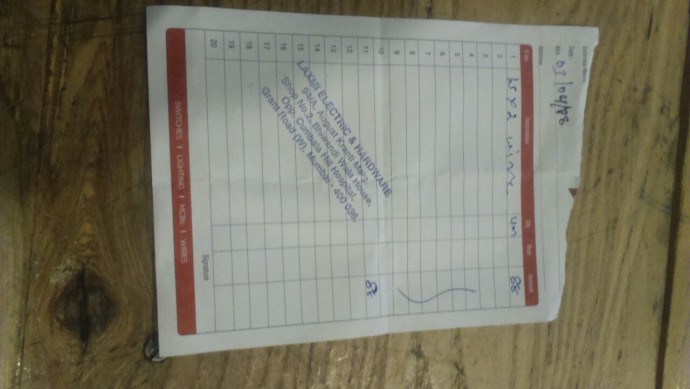 Date
03/04/23
S.No. Description Qty. Rate Amount
1 88
2
3
4
5
6
7
8
9
10
11 88
12
13
14
15
16
17
18
19
20
LAXMI ELECTRIC & HARDWARE
94/A, August Kranti Marg,
Shop No.2, Bhiwandi Wala House,
Opp. Cumbala Hill Hospital,
Grant Road (W), Mumbai - 400 036.
Signature
SWITCHES | LIGHTING | MCBs | WIRES